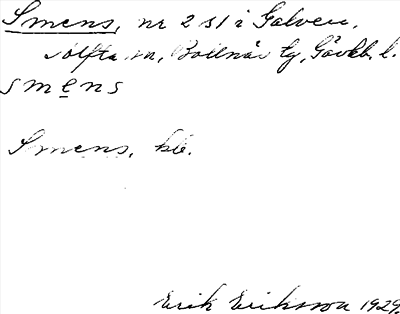 Smens, nr 2 s1 i Galven,
Jolfta sn, Bollnäs tg, Gävleb. l.
s m e n s
Smens, hb.
Erik Eriksson 1929.